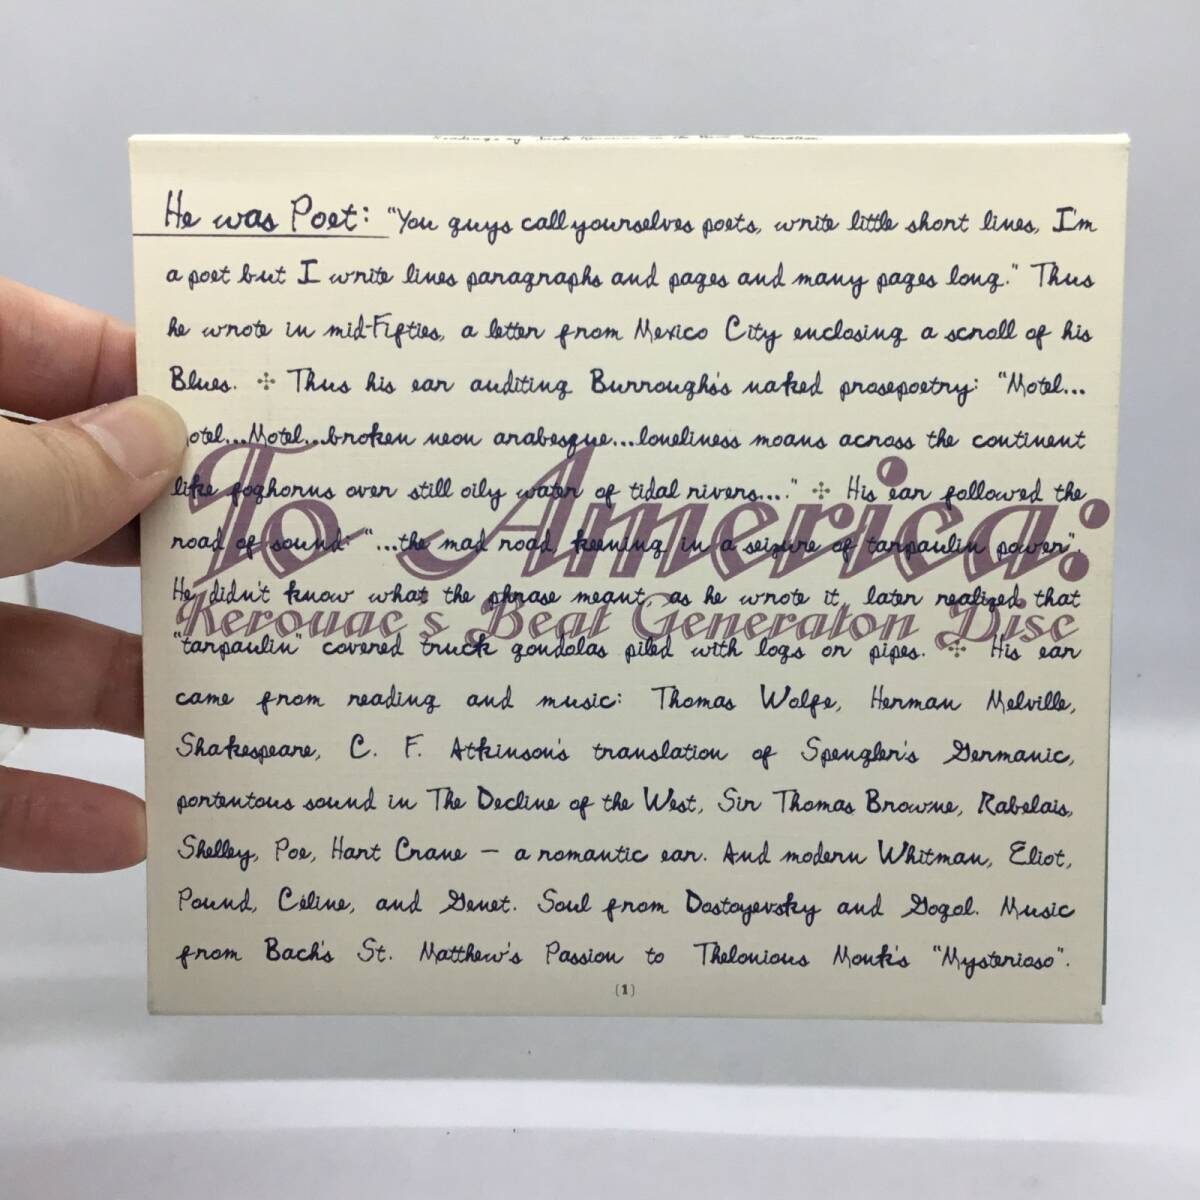 Readings by Jack Kerouac on the Beat Generation
He was Poet: "You guys call yourselves poets, write little short lines, I'm
a poet but I write lines paragraphs and pages and many pages long." Thus
he wrote in mid-Fifties, a letter from Mexico City enclosing a scroll of his
Blues. ✣ Thus his ear auditing Burroughs's naked prosepoetry: "Motel...
otel...Motel...broken neon arabesque...loneliness moans across the continent
like foghorns over still oily water of tidal rivers...." ✣ His ear followed the
road of sound: "...the mad road, keening in a seizure of tarpaulin power".
To America:
He didn't know what the phrase meant, as he wrote it, later realized that
Kerouac's Beat Generaton Disc
"tarpaulin" covered truck gondolas piled with logs or pipes. ✣ His ear
came from reading and music: Thomas Wolfe, Herman Melville,
Shakespeare, C. F. Atkinson's translation of Spengler's Germanic,
portentous sound in The Decline of the West, Sir Thomas Browne, Rabelais,
Shelley, Poe, Hart Crane — a romantic ear. And modern Whitman, Eliot,
Pound, Céline, and Genet. Soul from Dostoyevsky and Gogol. Music
from Bach's St. Matthew's Passion to Thelonious Monk's "Mysterioso".
(1)